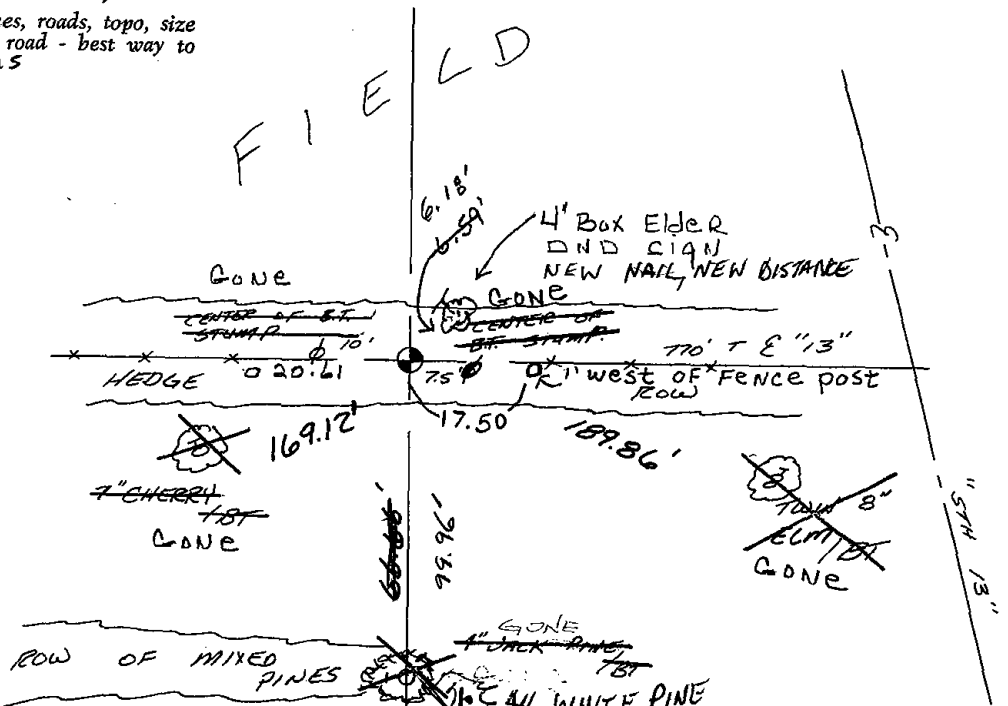 es, roads, topo, size
road - best way to
FIELD
6.18'
6.59'
4" Box Elder
DND SIGN
NEW NAIL, NEW DISTANCE
GONE
GONE
CENTER OF B.T.
STUMP
10'
CENTER OF
B.T. STUMP.
3
HEDGE
20.61
7.5'
1" west of Fence post
770' T & "13"
ROW
17.50
169.12'
189.86'
7" CHERRY
/BT
GONE
99.96'
TWIN 8"
ELM/BT
GONE
"STH 13"
GONE
4" JACK PINE
/BT
ROW OF MIXED
PINES
WHITE PINE